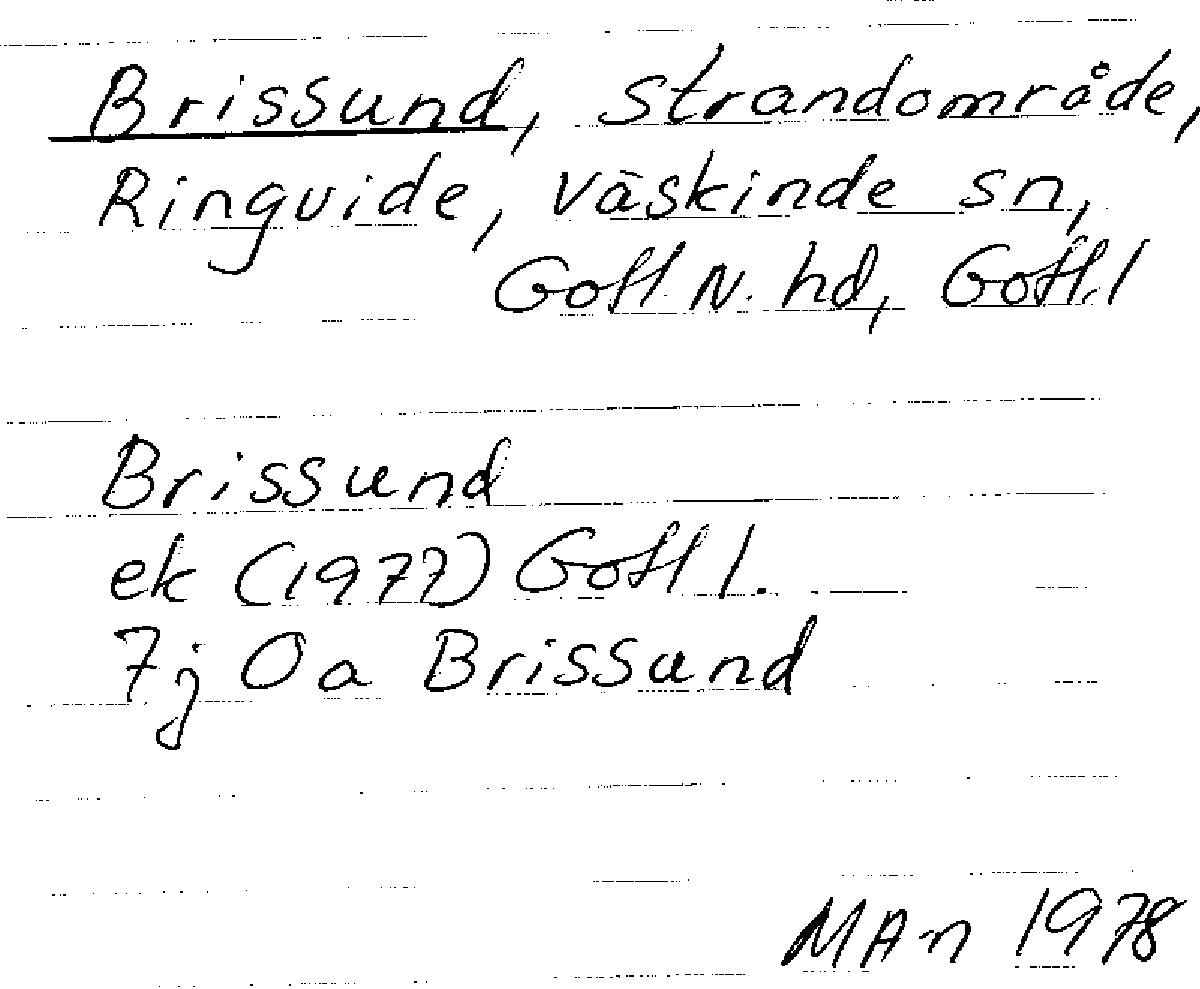 Brissund, strandområde,
Ringvide, Väskinde sn,
Gotl. N. hd, Gotl. l
Brissund
ek (1977) Gotl l.
7j 0a Brissund
MAn 1978